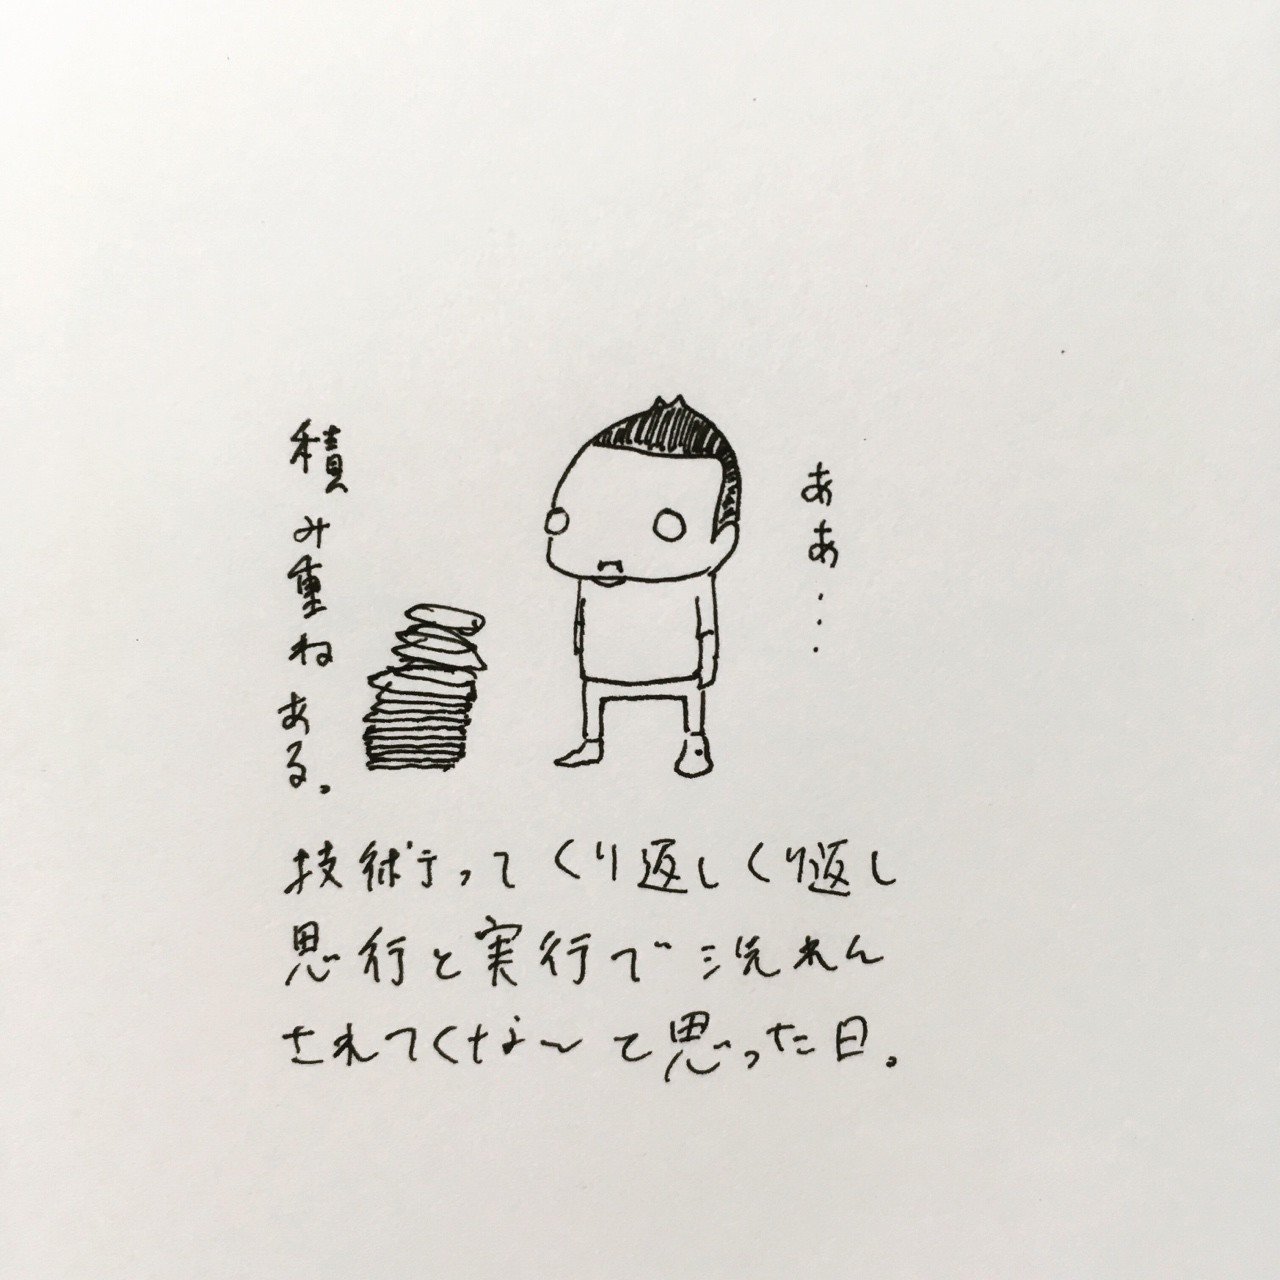 ああ...
積み重ねある。
技術ってくり返しくり返し
思行と実行で洗れん
されてくな〜と思った日。